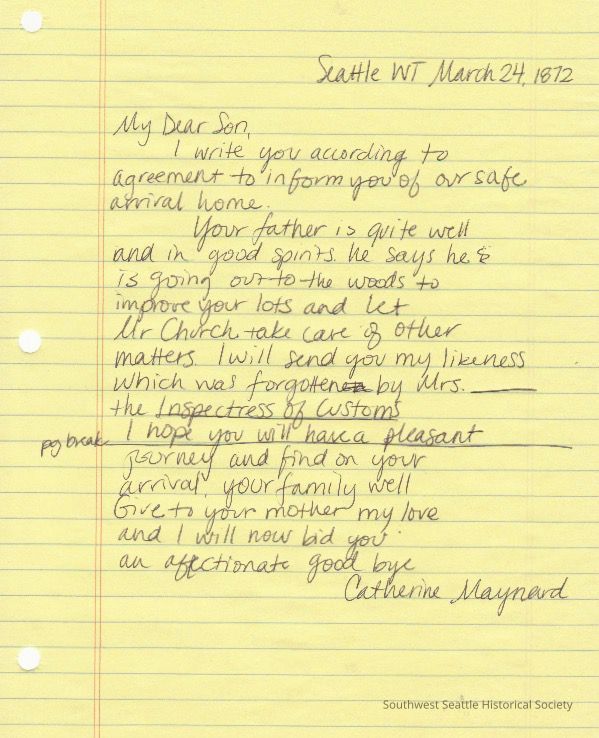 Seattle WT March 24, 1872
My Dear Son,
I write you according to
agreement to inform you of our safe
arrival home.
Your father is quite well
and in good spirits. he says he
is going out to the woods to
improve your lots and let
Mr Church take care of other
matters. I will send you my likeness
which was forgotten by Mrs. ______
the Inspectress of Customs
pg break I hope you will have a pleasant
journey and find on your
arrival, your family well
Give to your mother my love
and I will now bid you
an affectionate good bye
Catherine Maynard
Southwest Seattle Historical Society